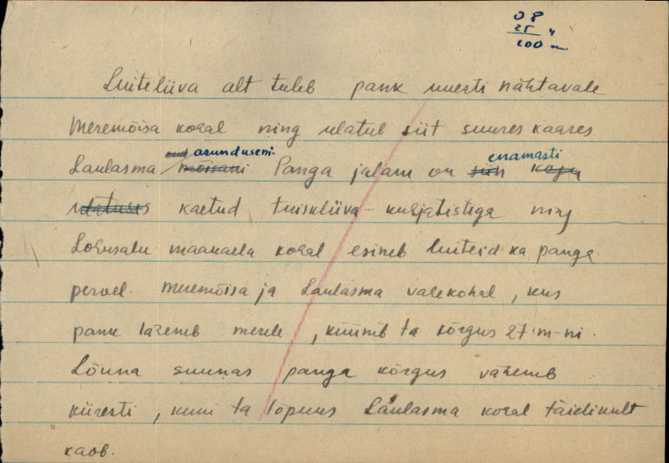 08
25 4
200 m
Luiteliiva alt tuleb pank uuesti nähtavale
Meremõisa kohal ning ulatub siit suures kaares
asunduseni
enamasti
Laulasma mõisani Panga jalam on siin kogu
ulatuses kaetud tuiskliiva-kuhjatistega ning
Lohusalu maanaela kohal esineb luiteid ka panga
pervel. Meremõisa ja Laulasma vahekohal, kus
pank läheneb merele, küünib ta kõrgus 27 m-ni.
Lõuna suunas panga kõrgus väheneb
kiiresti, kuni ta lõpuks Laulasma kohal täielikult
kaob.